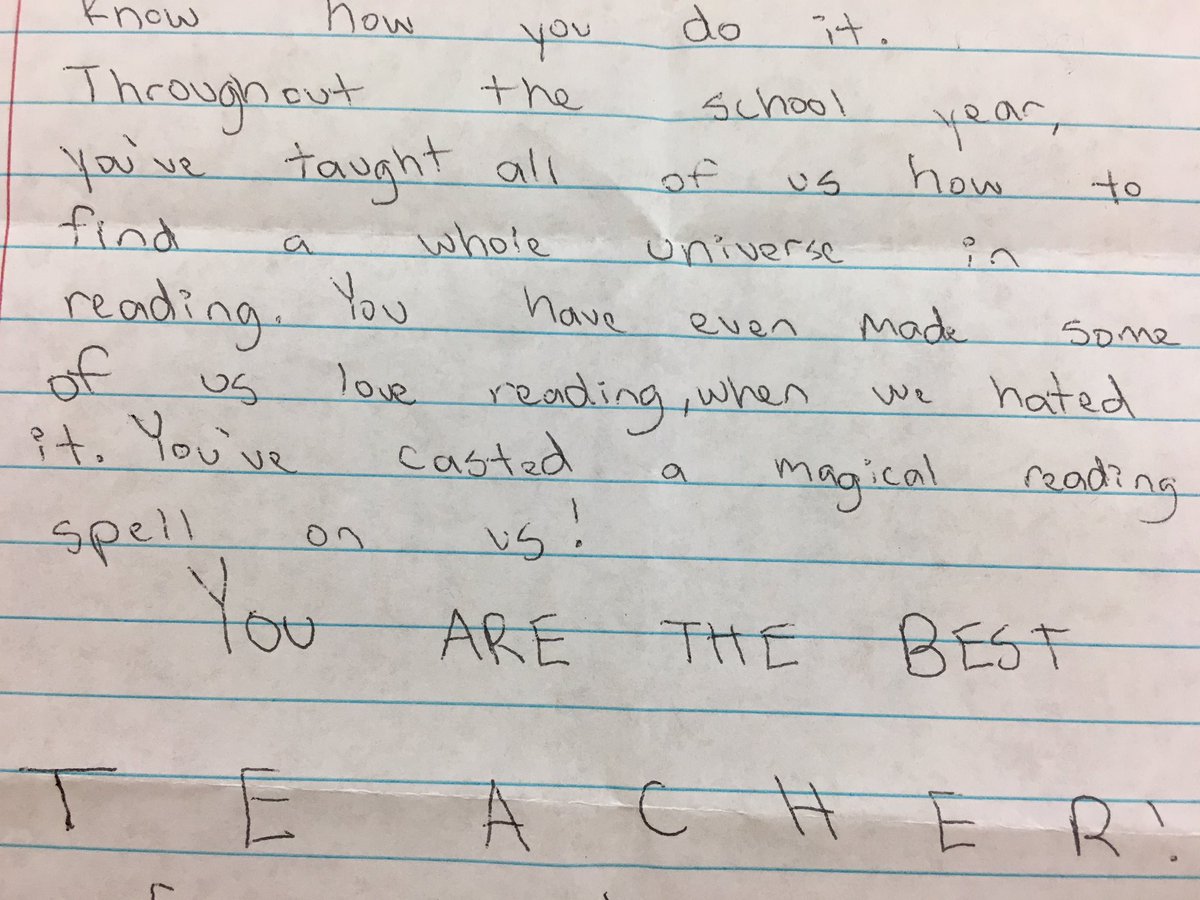 know how you do it.
Throughout the school year,
you've taught all of us how to
find a whole universe in
reading. You have even made some
of us love reading, when we hated
it. You've casted a magical reading
spell on us!
You ARE THE BEST
T E A C H E R!